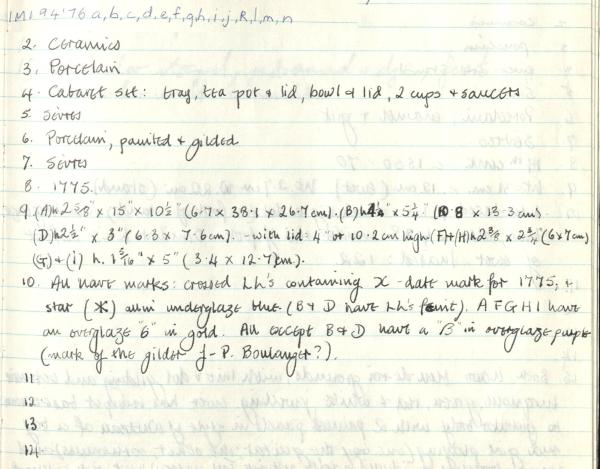 IMI 94'76 a,b,c,d,e,f,g,h,i,j,k,l,m,n
2. Ceramics
3. Porcelain
4. Cabaret set: tray, tea pot & lid, bowl & lid, 2 cups & saucers
5. Sèvres
6. Porcelain, painted & gilded
7. Sèvres
8. 1775.
9. (A) h 2 5/8" x 15" x 10 1/2" (6.7 x 38.1 x 26.7 cm). (B) h 4 1/4" x 5 1/4" (10.8 x 13.3 cm)
(D) h 2 1/2" x 3" (6.3 x 7.6 cm). - with lid 4" or 10.2 cm high. (F) + (H) h 2 3/8 x 2 3/4 (6 x 7 cm)
(G) + (i) h. 1 5/16" x 5" (3.4 x 12.7 cm).
10. All have marks: crossed Lh's containing X - date mark for 1775; +
star (*) all in underglaze blue. (B & D have Lh's faint). A F G H I have
an overglaze "6" in gold. All except B & D have a "B" in overglaze purple
(mark of the gilder J-P. Boulanger?).
11
12
13
14